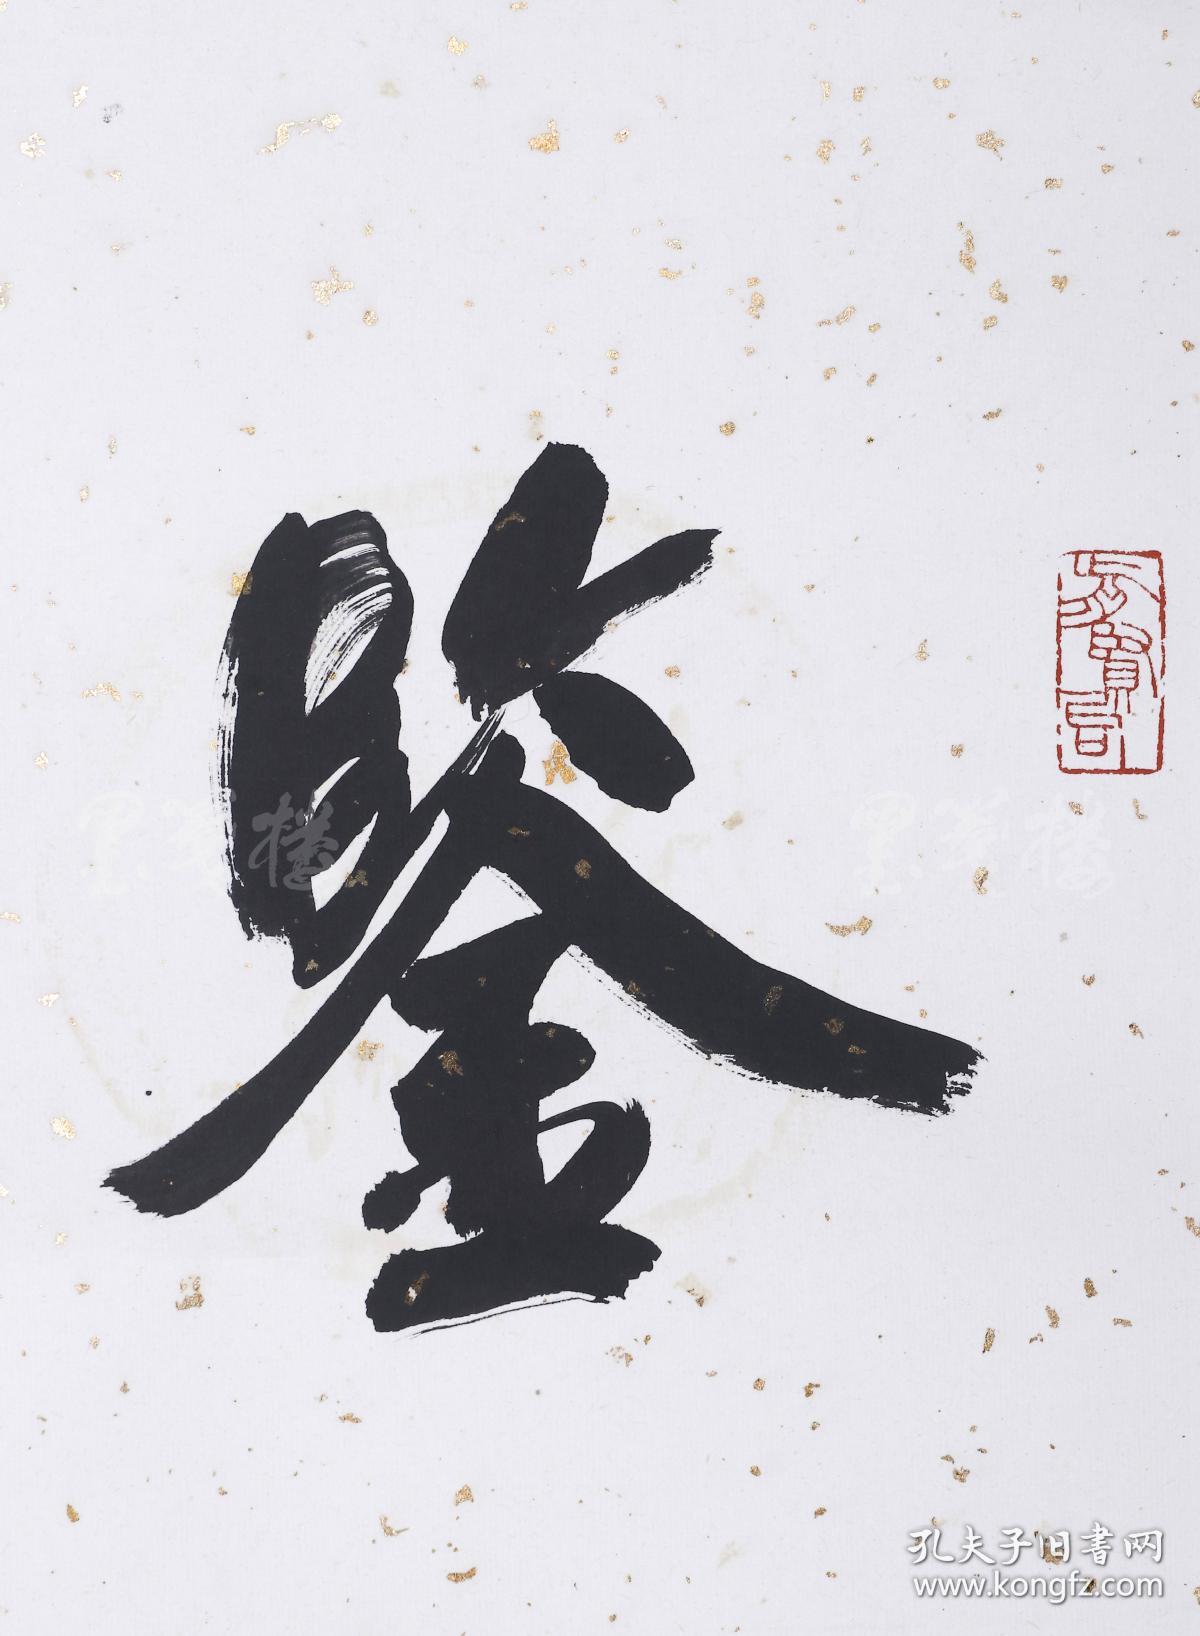 鉴
墨笺楼
墨笺楼
孔夫子旧書网
www.kongfz.com